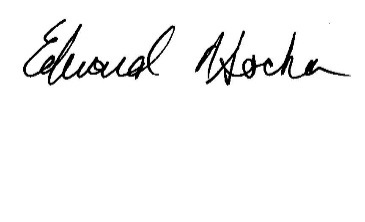 Edward Hocha